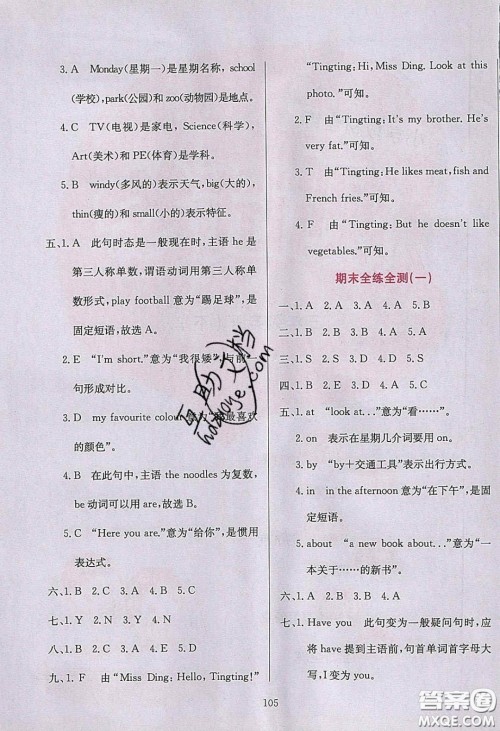 3. A　Monday(星期一)是星期名称, school
(学校), park(公园)和 zoo(动物园)是地点。
4. C　TV(电视)是家电, Science(科学),
Art(美术)和 PE(体育)是学科。
5. B　windy(多风的)表示天气, big(大的),
thin(瘦的)和 small(小的)表示特征。
五、1. A　此句时态是一般现在时, 主语 he 是
第三人称单数, 谓语动词用第三人称单
数形式, play football 意为“踢足球”, 是
固定短语, 故选 A。
2. E　“I'm short.”意为“我很矮”, 与前一
句形成对比。
3. D　my favourite colour 意为“我最喜欢
的颜色”。
4. B　在此句中, 主语 the noodles 为复数,
be 动词可以用 are, 故选 B。
5. C　“Here you are.”意为“给你”, 是惯用
表达式。
六、1. B　2. B　3. A　4. A　5. C
七、1. Y　2. N　3. Y　4. N
八、1. C　2. B　3. A　4. D　5. B
九、1. F　由“Miss Ding: Hello, Tingting!”
“Tingting: Hi, Miss Ding. Look at this
photo.”可知。
2. F　由“Tingting: It's my brother. He's
very fat.”可知。
3. T　由“Tingting: He likes meat, fish and
French fries.”可知。
4. F　由“Tingting: But he doesn't like
vegetables.”可知。
期末全练全测(一)
一、1. A　2. A　3. A　4. A　5. B
二、1. B　2. D　3. C　4. B　5. A
三、1. S　2. S　3. D　4. S　5. D
四、1. B　2. E　3. D　4. A　5. C
五、1. at　“look at...”意为“看……”。
2. on　表示在星期几介词要用 on。
3. by　“by＋交通工具”表示出行方式。
4. in　in the afternoon 意为“在下午”, 是
固定短语。
5. about　“a new book about...”意为“一
本关于……的新书”。
六、1. B　2. B　3. A　4. A
七、1. Have you　此句变为一般疑问句时, 应
将 have 提到主语前, 句首单词首字母大
写, I 变为 you。
105
互助文档
hdzuoye.com
答案圈
MXQE.COM